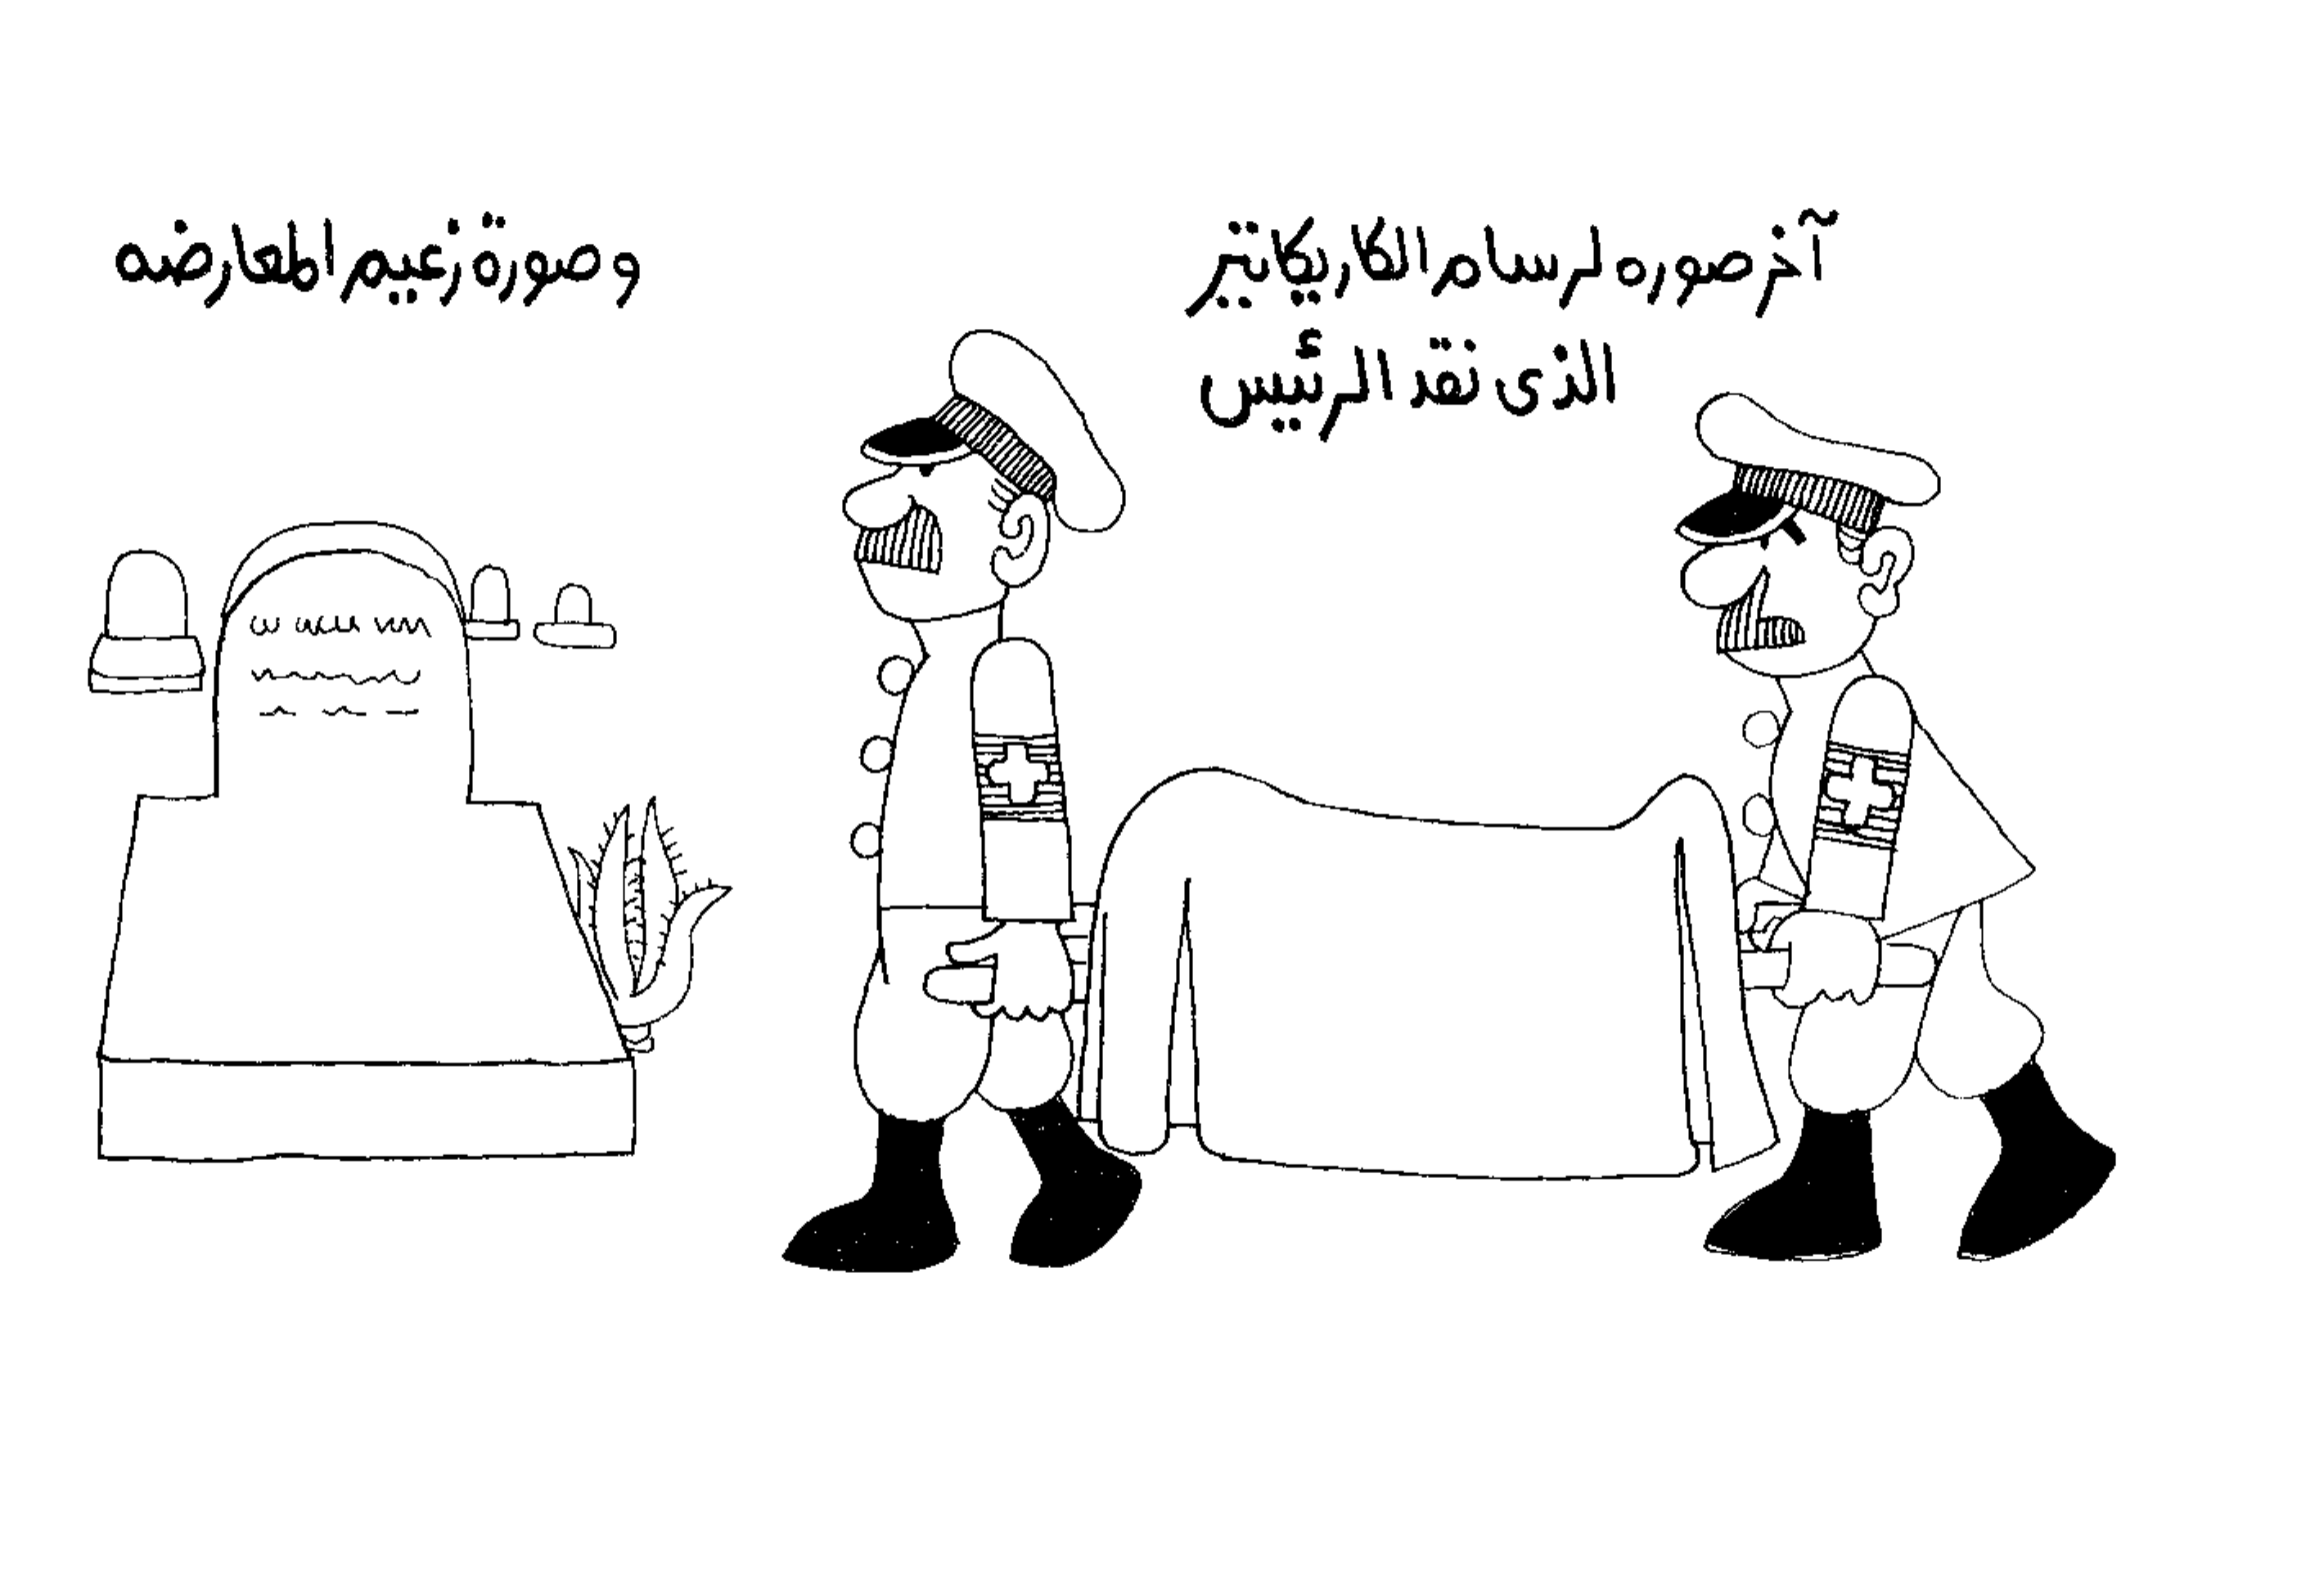 آخر صوره لرسام الكاريكاتير
الذى نقد الرئيس
وصورة زعيم المعارضه